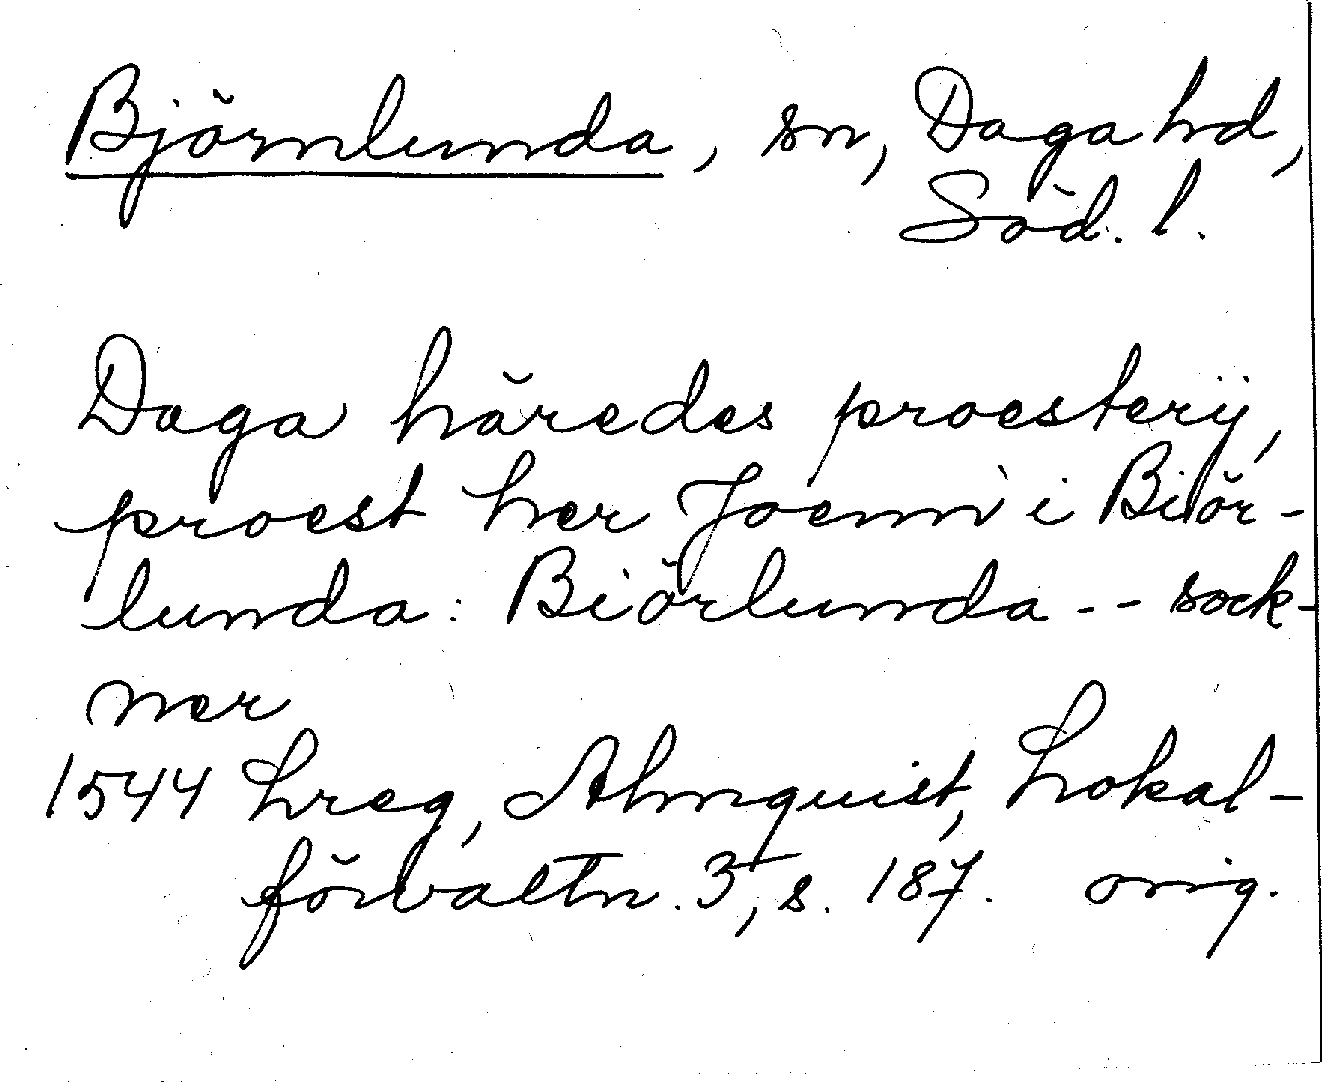 Björnlunda, sn, Daga hd,
Söd. l.
Daga häredes proesterij,
proest her Joenn i Biör-
lunda: Biörlunda -- sock-
ner
1544 Lreg, Almquist, Lokal-
förvaltn. 3, s. 187. orig.